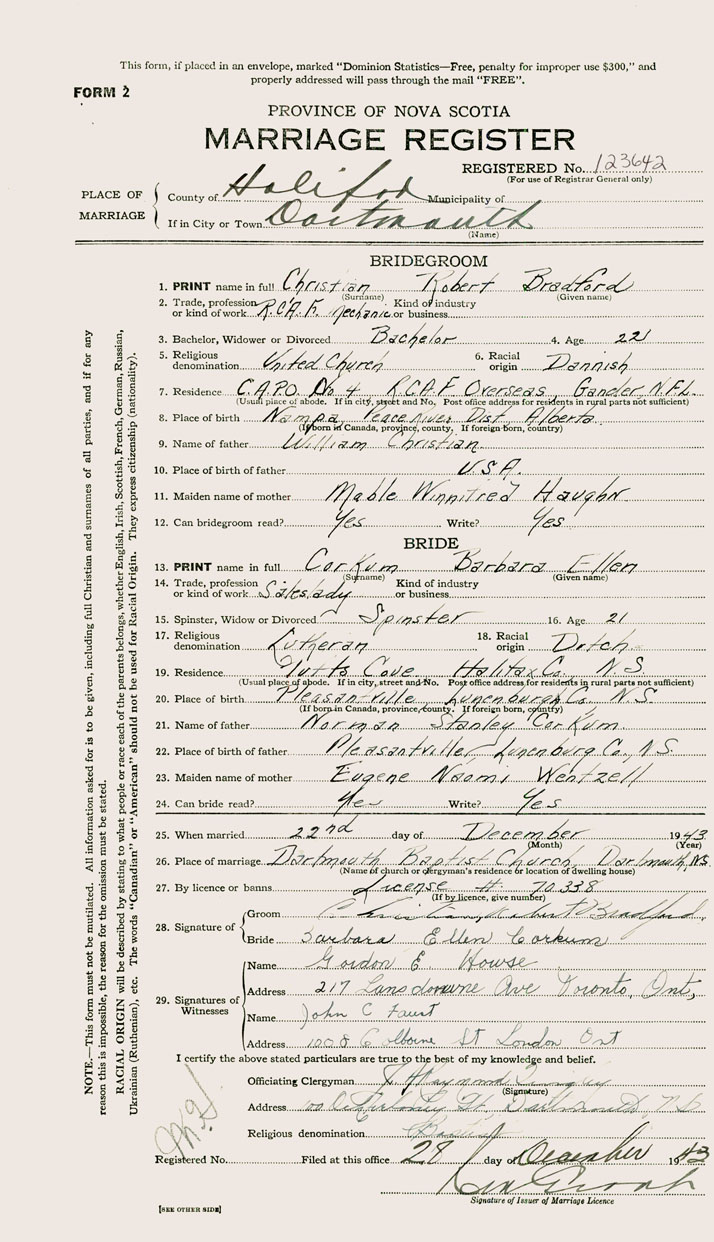 This form, if placed in an envelope, marked "Dominion Statistics—Free, penalty for improper use $300," and
properly addressed will pass through the mail "FREE".
FORM 2
PROVINCE OF NOVA SCOTIA
MARRIAGE REGISTER
REGISTERED No. 123642
(For use of Registrar General only)
PLACE OF MARRIAGE
County of Halifax Municipality of
If in City or Town Dartmouth
(Name)
BRIDEGROOM
1. PRINT name in full Christian Robert Bradford
(Surname) (Given name)
2. Trade, profession or kind of work R.C.A.F. Mechanic Kind of industry or business
3. Bachelor, Widower or Divorced Bachelor 4. Age 22
5. Religious denomination United Church 6. Racial origin Dannish
7. Residence C.A.P.O. No 4 R.C.A.F Overseas, Gander, N.F.L.
(Usual place of abode. If in city, street and No. Post office address for residents in rural parts not sufficient)
8. Place of birth Nampa Peace River Dist, Alberta
(If born in Canada, province, county. If foreign born, country)
9. Name of father William Christian
10. Place of birth of father U.S.A.
11. Maiden name of mother Mable Winnifred Haughn
12. Can bridegroom read? Yes Write? Yes
BRIDE
13. PRINT name in full Corkum Barbara Ellen
(Surname) (Given name)
14. Trade, profession or kind of work Saleslady Kind of industry or business
15. Spinster, Widow or Divorced Spinster 16. Age 21
17. Religious denomination Lutheran 18. Racial origin Dutch
19. Residence Tufts Cove Halifax Co. N.S.
(Usual place of abode. If in city, street and No. Post office address for residents in rural parts not sufficient)
20. Place of birth Pleasantville Lunenburgh Co. N.S.
(If born in Canada, province, county. If foreign born, country)
21. Name of father Norman Stanley Corkum
22. Place of birth of father Pleasantville, Lunenburg Co., N.S.
23. Maiden name of mother Eugene Naomi Wentzell
24. Can bride read? Yes Write? Yes
25. When married 22nd day of December 1943
(Month) (Year)
26. Place of marriage Dartmouth Baptist Church, Dartmouth, N.S.
(Name of church or clergyman's residence or location of dwelling house)
27. By licence or banns License # 70.338
(If by licence, give number)
28. Signature of
Groom Christian, Robert Bradford
Bride Barbara Ellen Corkum
29. Signatures of Witnesses
Name Gordon E. Howse
Address 217 Lansdowne Ave Toronto, Ont,
Name John C Faust
Address 1008 Colborne St London Ont
I certify the above stated particulars are true to the best of my knowledge and belief.
Officiating Clergyman
(Signature)
Address Dartmouth, N S
Religious denomination Baptist
Registered No. Filed at this office 28 day of December 1943
Signature of Issuer of Marriage Licence
[SEE OTHER SIDE]
NOTE.—This form must not be mutilated. All information asked for is to be given, including full Christian and surnames of all parties, and if for any
reason this is impossible, the reason for the omission must be stated.
RACIAL ORIGIN will be described by stating to what people or race each of the parents belongs, whether English, Irish, Scottish, French, German, Russian,
Ukrainian (Ruthenian), etc. The words "Canadian" or "American" should not be used for Racial Origin. They express citizenship (nationality).